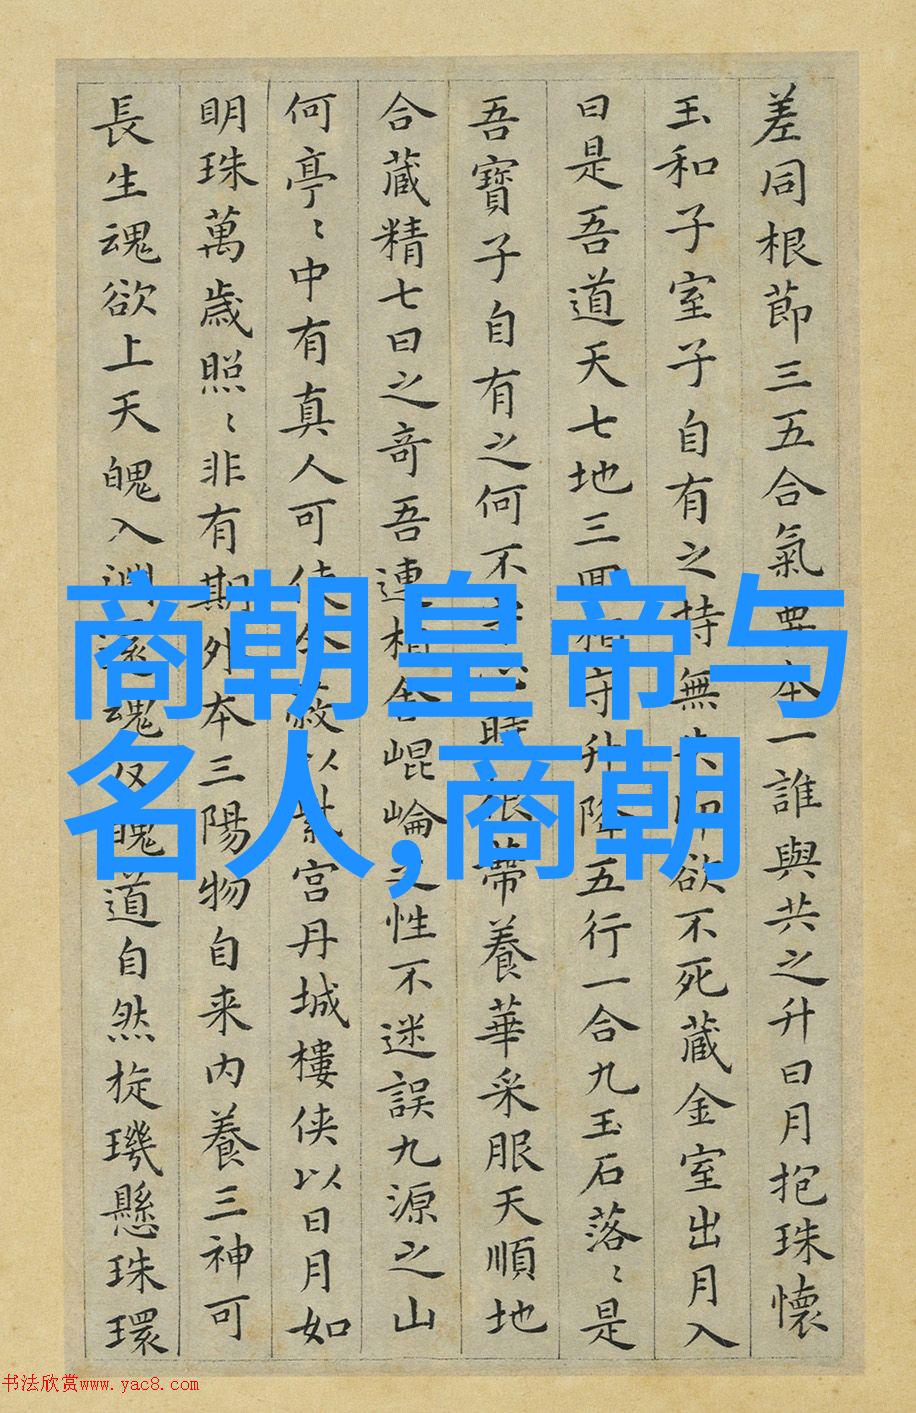 差同根節三五合氣要本一誰與共之升日月抱珠懷
玉和子室子自有之持無即欲不死藏金室出月入
日是吾道天七地三回相守升降五行一合九玉石落〻是
吾寶子自有之何不根蔕養華采服天順地
合藏精七日之奇吾連相舍崐崘之性不迷誤九源之山
何亭〻中有真人可使令蔽以紫宮丹城樓俠以日月如
明珠萬歲照〻非有期外本三陽物自来内養三神可
長生魂欲上天魄入淵還魂反魄道自然旋璣懸珠環
商朝皇帝与
名人,商朝
书法欣赏www.yac8.com